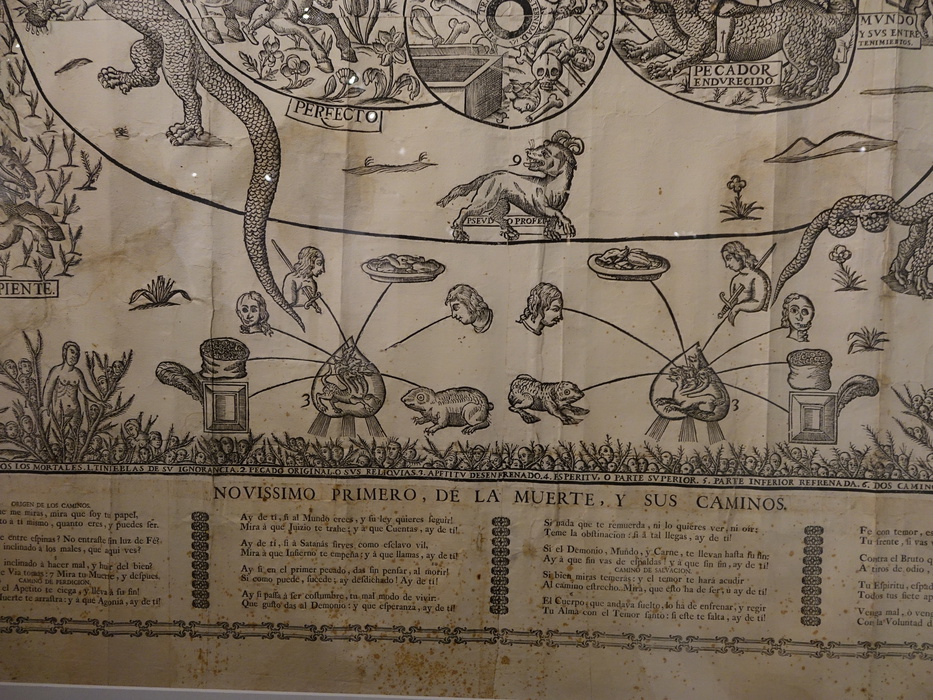 MVNDO
Y SVS ENTRE
TENIMIENTOS.
PECADOR
ENDVRECIDO.
PERFECTO
9
PSEVDO PROFE
PIENTE.
3
3
OS LOS MORTALES. 1. TINIEBLAS DE SV IGNORANCIA. 2. PECADO ORIGINAL, O SVS RELIQVIAS. 3. APETITV DESENFRENADO. 4. ESPERITV, O PARTE SVPERIOR. 5. PARTE INFERIOR REFRENADA. 6. DOS CAMINO
NOVISSIMO PRIMERO, DE LA MUERTE, Y SUS CAMINOS.
ORIGEN DE LOS CAMINOS.
ue me miras, mira que soy tu papel,
to à ti mismo, quanto eres, y puedes ser.
e entre espinas? No entraste sin luz de Fé?
inclinado a los males, que aqui ves?
inclinado à hacer mal, y huir del bien?
e Via tomas? y Mira tu Muerte, y despues.
CAMINO DE PERDICION.
el Apetito te ciega, y lleva à su fin!
Muerte te arrastra: y à que Agonia, ay de ti!
Ay de ti, si al Mundo eres, y su ley quieres seguir!
Mira à què Juizio te trahe; y a que Cuentas, ay de ti!
Ay de ti, si à Satanàs sirves como esclavo vil,
Mira à que Infierno te empeña; y à que llamas, ay de ti!
Ay si en el primer pecado, das sin pensar, al morir!
Si como puede, sucede; ay desdichado! Ay de ti!
Ay si passa à ser costumbre, tu mal modo de vivir:
Que gusto das al Demonio: y que esperanza, ay de ti!
Si nada que te remuerda, ni lo quieres ver, ni oir:
Teme la obstinacion: si à tal llegas, ay de ti!
Si el Demonio, Mundo, y Carne, te llevan hasta su fin
Ay à que fin vas de espaldas! y à que sin fin, ay de ti!
CAMINO DE SALVACION.
Si bien miras temeràs: y el temor te harà acudir
Al camino estrecho. Mira, que esto ha de ser, u ay de ti!
El Cuerpo, que andava suelto, lo hà de enfrenar, y regir
Tu Alma con el Temor santo: si este te falta, ay de ti!
Fe con temor, en
Tu frente, si vas
Contra el Bruto q
A tiros de odio,
Tu Espiritu, espad
Todos tus siete ap
Venga mal, ò ven
Con la Voluntad d